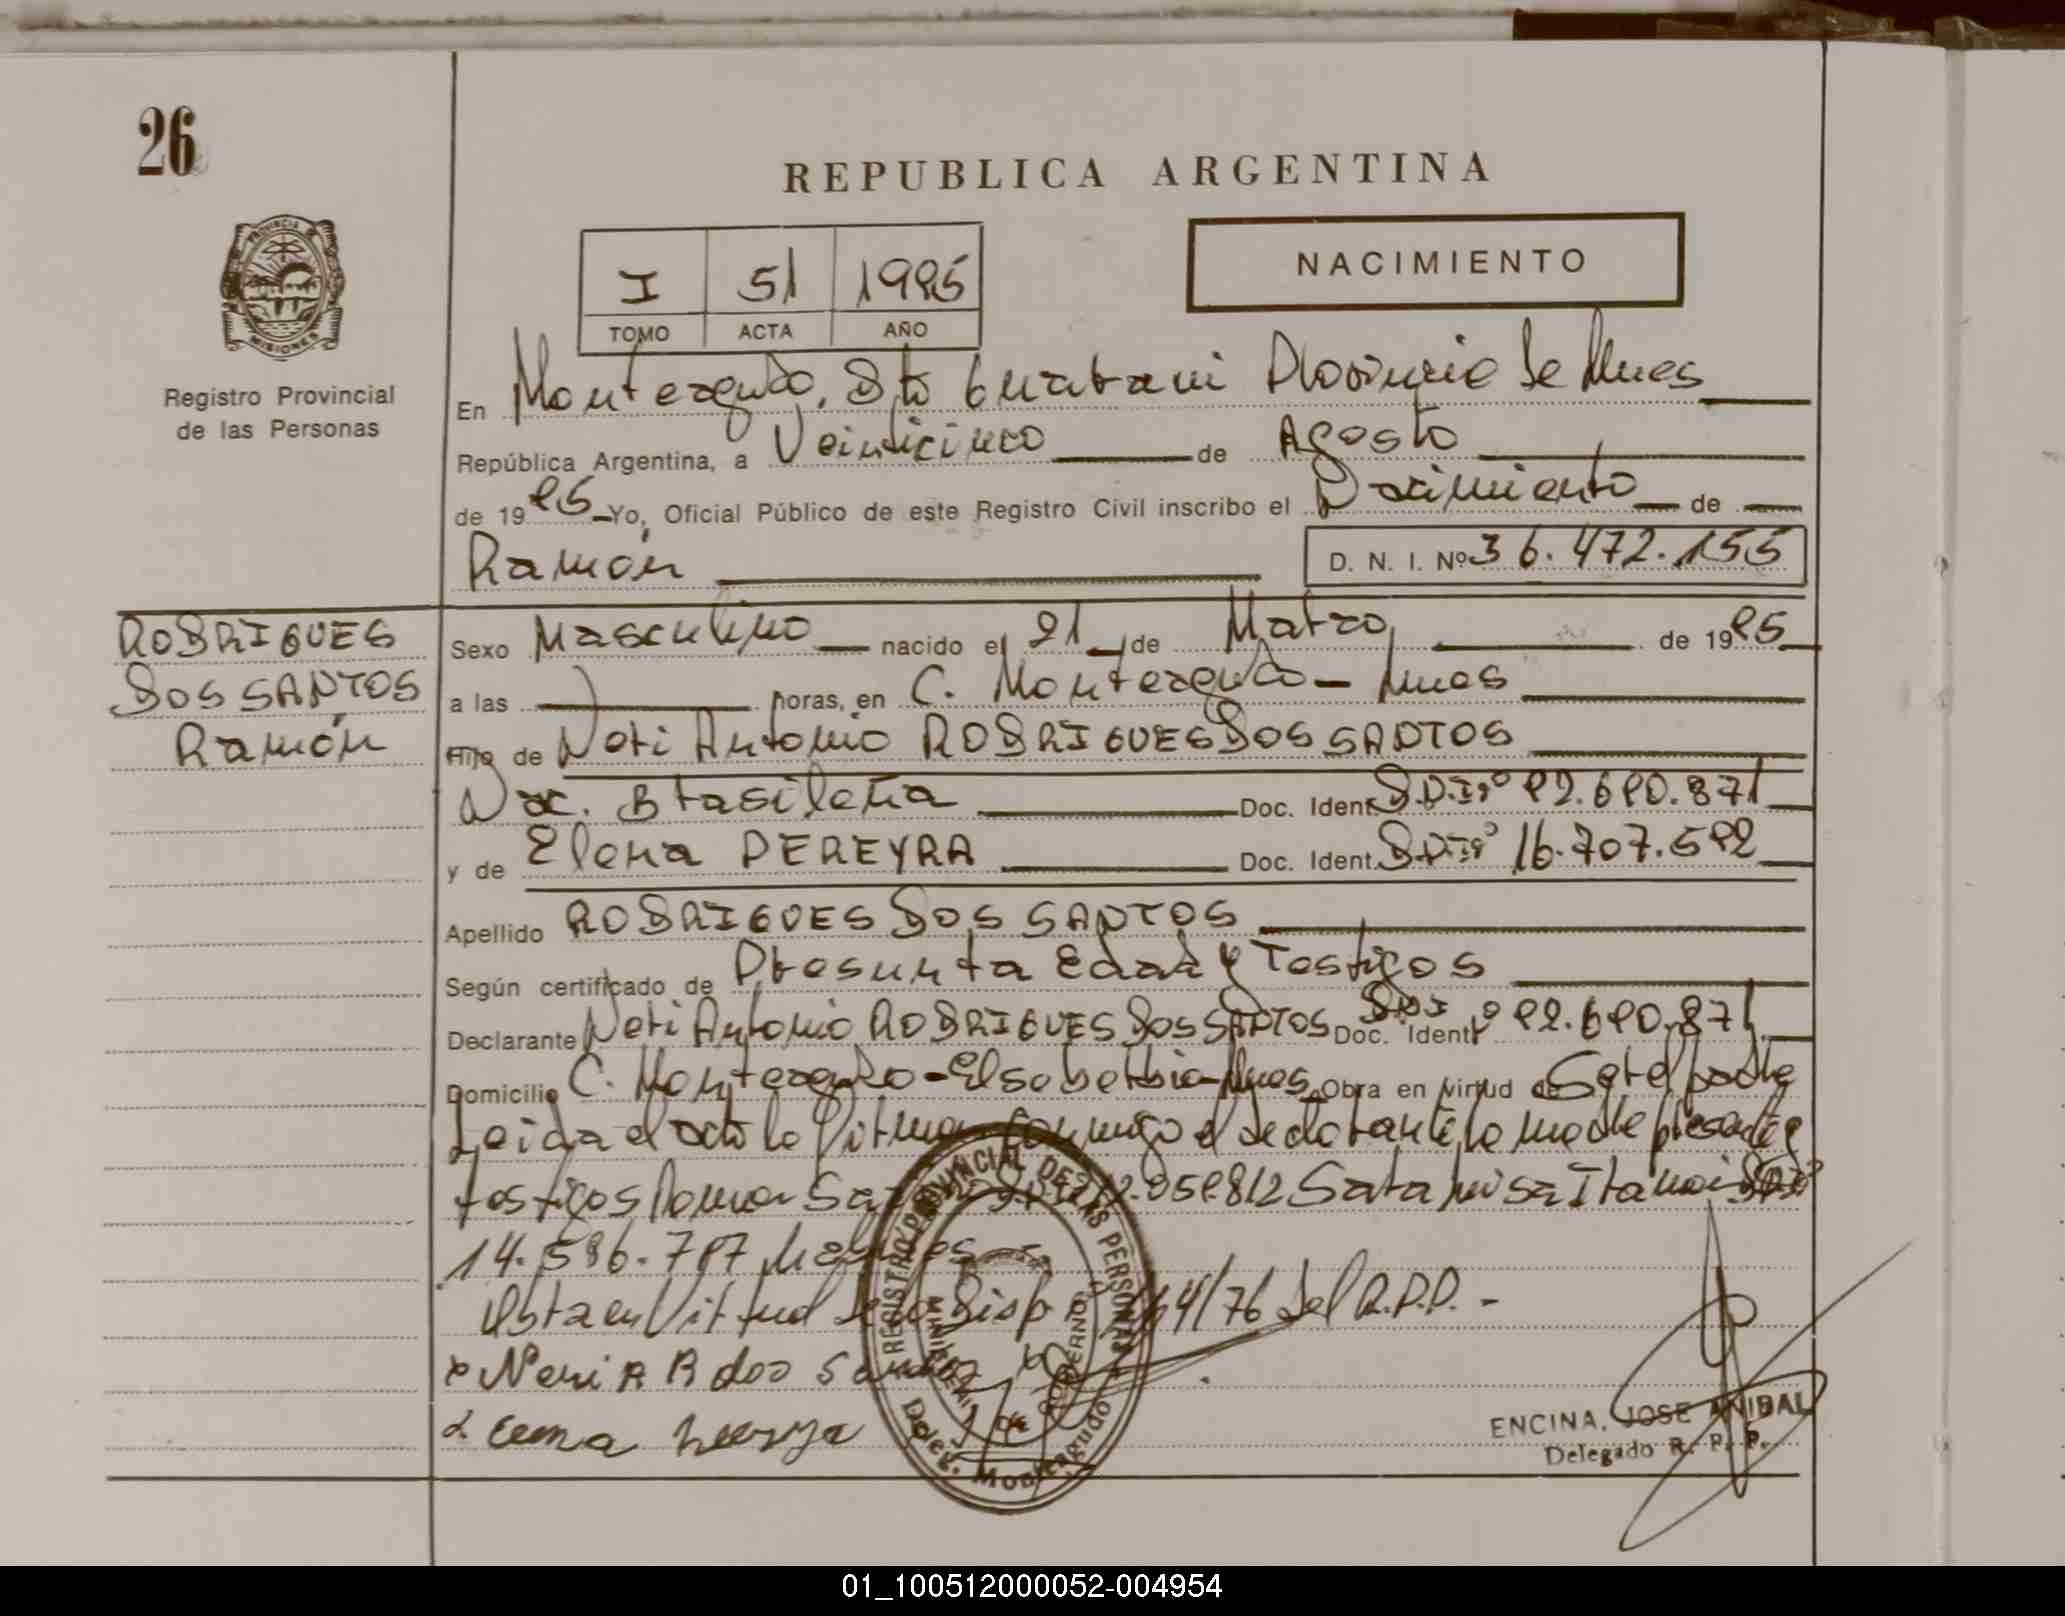 26
REPUBLICA ARGENTINA
PROVINCIA DE
MISIONES
Registro Provincial
de las Personas
I 51 1985
TOMO ACTA AÑO
NACIMIENTO
En Monteagudo, Dto Guarani Provincia de Mnes
República Argentina, a Veinticinco de Agosto
de 1985 Yo, Oficial Público de este Registro Civil inscribo el Nacimiento de
Ramón
D. N. I. Nº 36.472.155
RODRIGUES
DOS SANTOS
Ramón
Sexo Masculino nacido el 21 de Marzo de 1985
a las horas, en C. Monteagudo - Mnes
Hijo de Neri Antonio RODRIGUES DOS SANTOS
Nac. Brasileña Doc. Ident. D.N.Iº 92.690.871
y de Elena PEREYRA Doc. Ident. D.N.Iº 16.707.592
Apellido RODRIGUES DOS SANTOS
Según certificado de Presunta Edad y Testigos
Declarante Neri Antonio RODRIGUES DOS SANTOS Doc. Ident. DNIº 92.690.871
Domicilio C. Monteagudo - El soberbio - Mnes Obra en virtud de Ser el padre
Leida el acta la firman conmigo el declarante la madre presente
testigos 812 Sara Itamar
14.586.787
Obra en Virtud de la Disp 64/76 del R.P.P. -
Neri A R dos Santos
REGISTRO PROVINCIAL DE LAS PERSONAS
MINISTERIO DE GOBIERNO
Deleg. Monteagudo
ENCINA, JOSE ANIBAL
Delegado R. P. P.
01_100512000052-004954